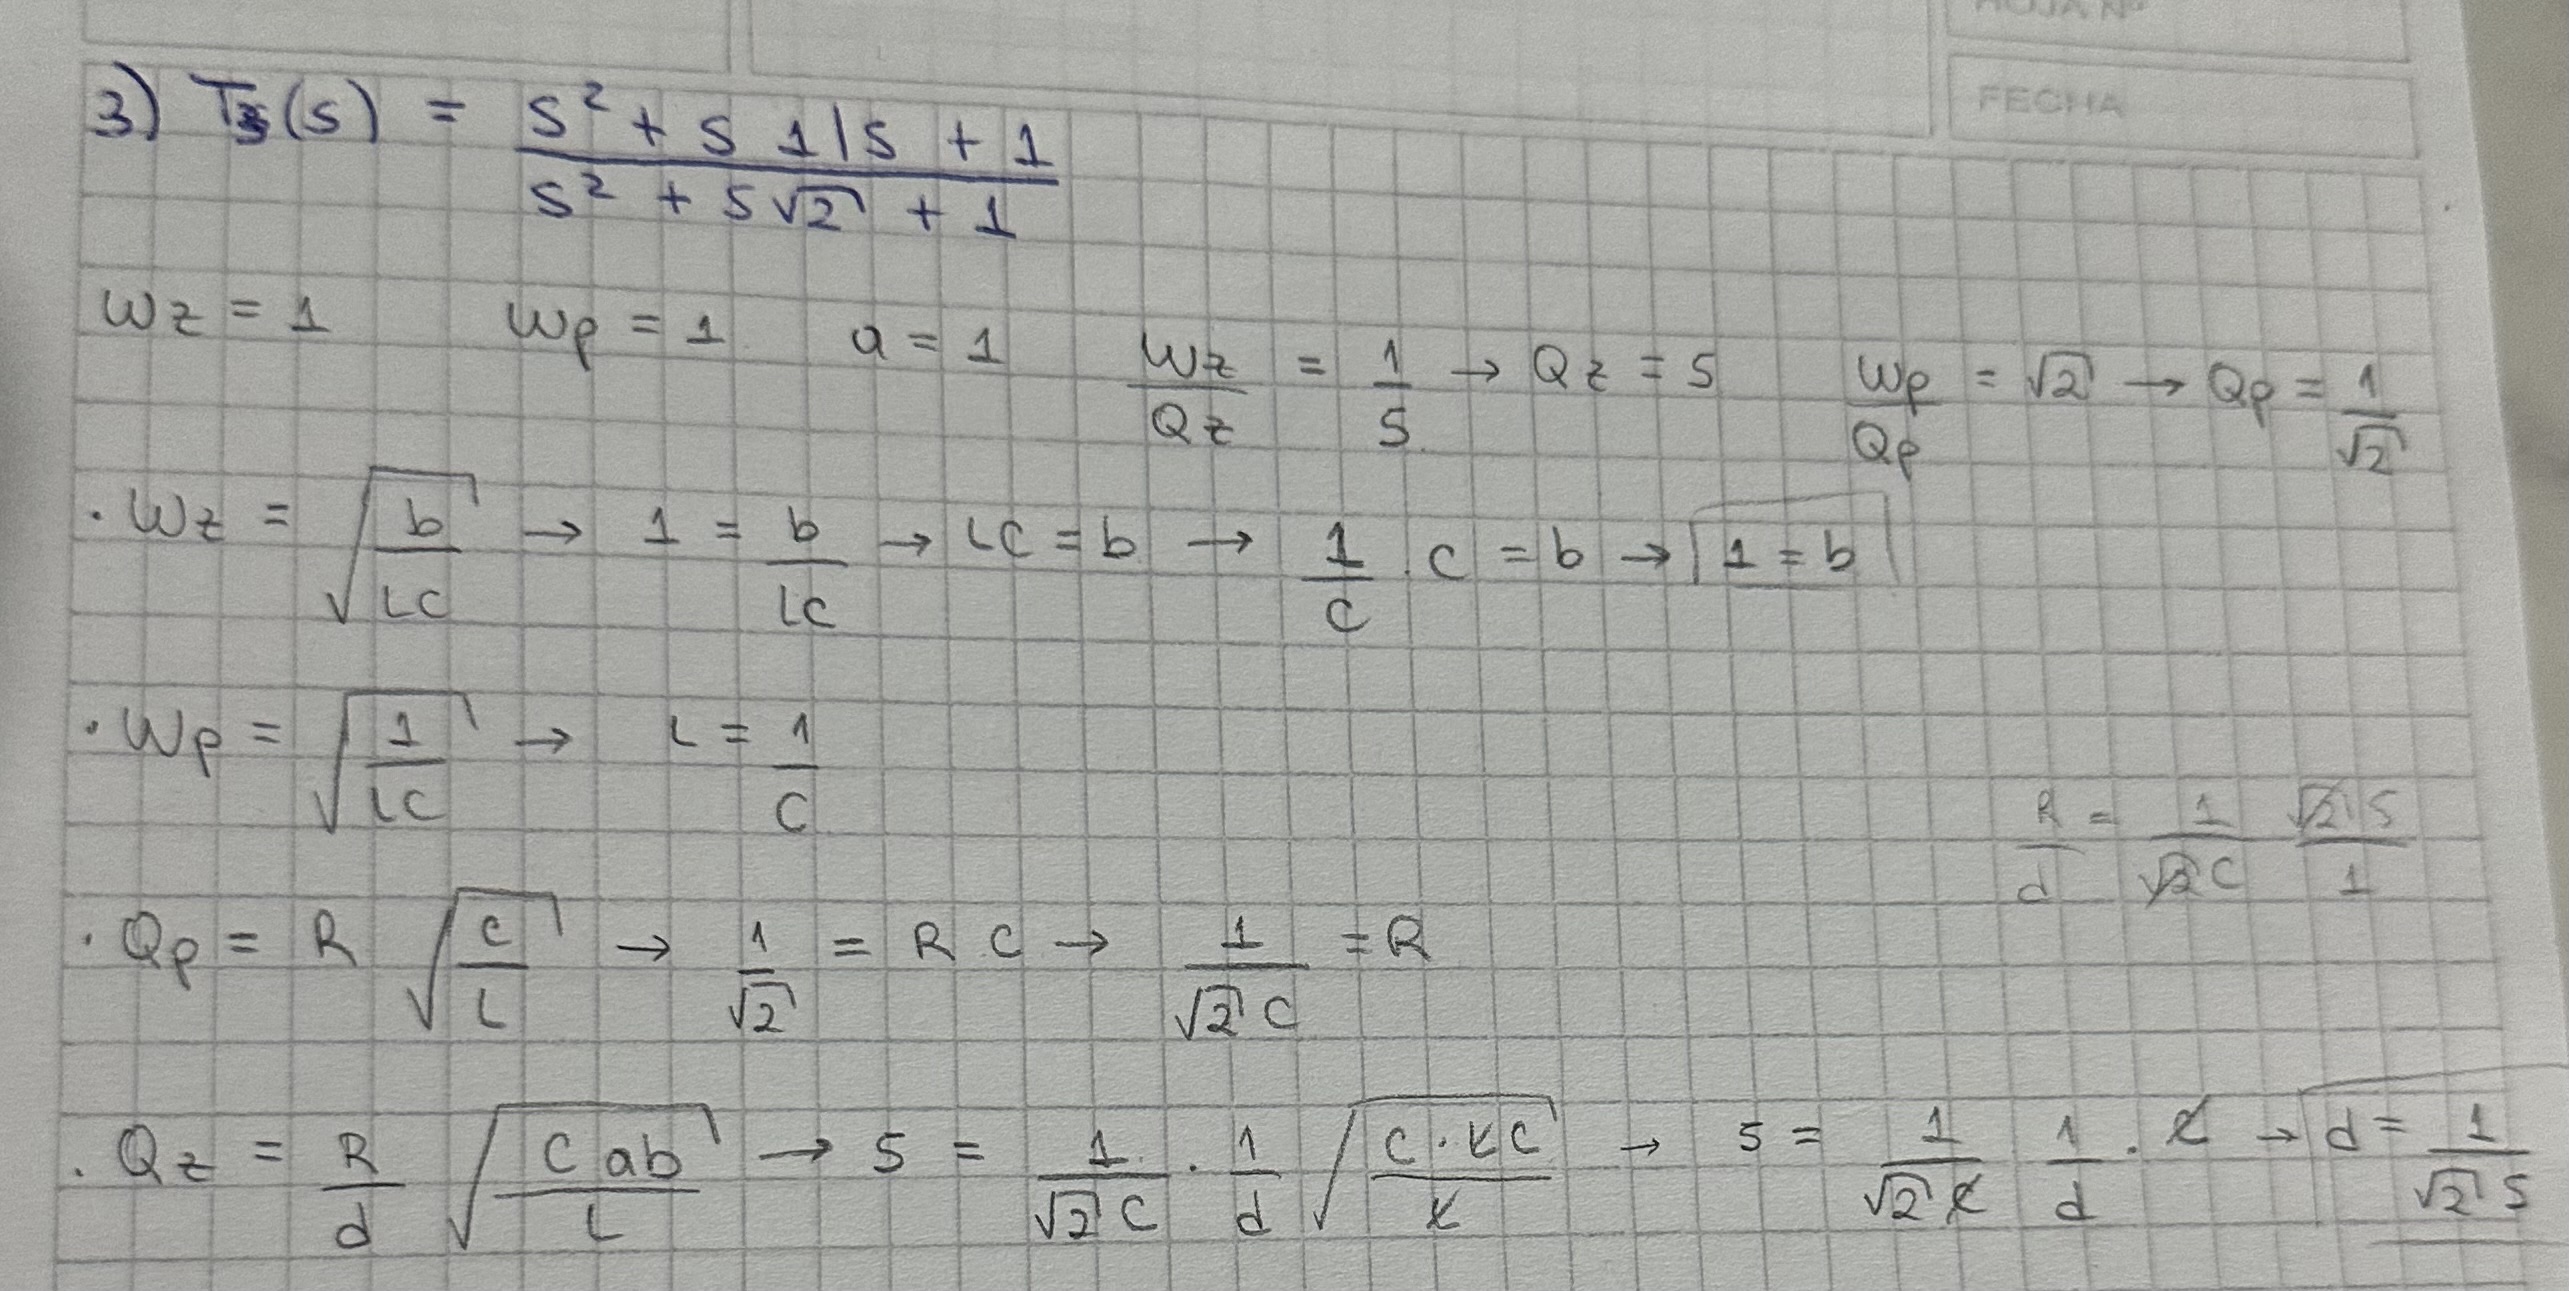 HOJA Nº
FECHA
3) T3(s) = (s² + s 1/5 + 1) / (s² + s√2 + 1)
Wz = 1 Wp = 1 a = 1 Wz/Qz = 1/5 → Qz = 5 Wp/Qp = √2 → Qp = 1/√2
· Wz = √(b/LC) → 1 = b/LC → LC = b → 1/C · C = b → 1 = b
· Wp = √(1/LC) → L = 1/C
R/d = 1/(√2 C) √2 5/1
· Qp = R √(C/L) → 1/√2 = R C → 1/(√2 C) = R
· Qz = R/d √(C ab/L) → 5 = 1/(√2 C) · 1/d √(C · LC/L) → 5 = 1/(√2 C) 1/d · C → d = 1/(√2 5)